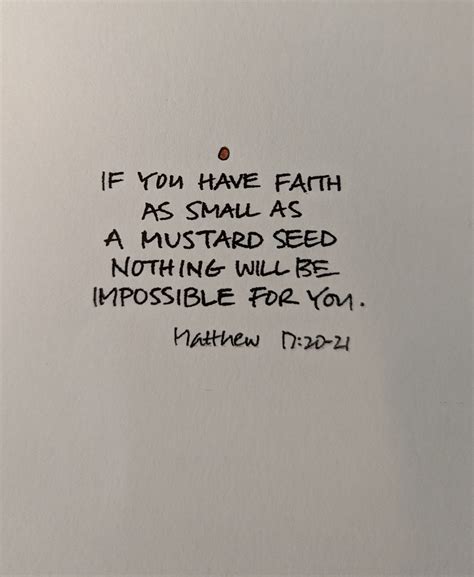 IF YOU HAVE FAITH
AS SMALL AS
A MUSTARD SEED
NOTHING WILL BE
IMPOSSIBLE FOR YOU.
Matthew 17:20-21